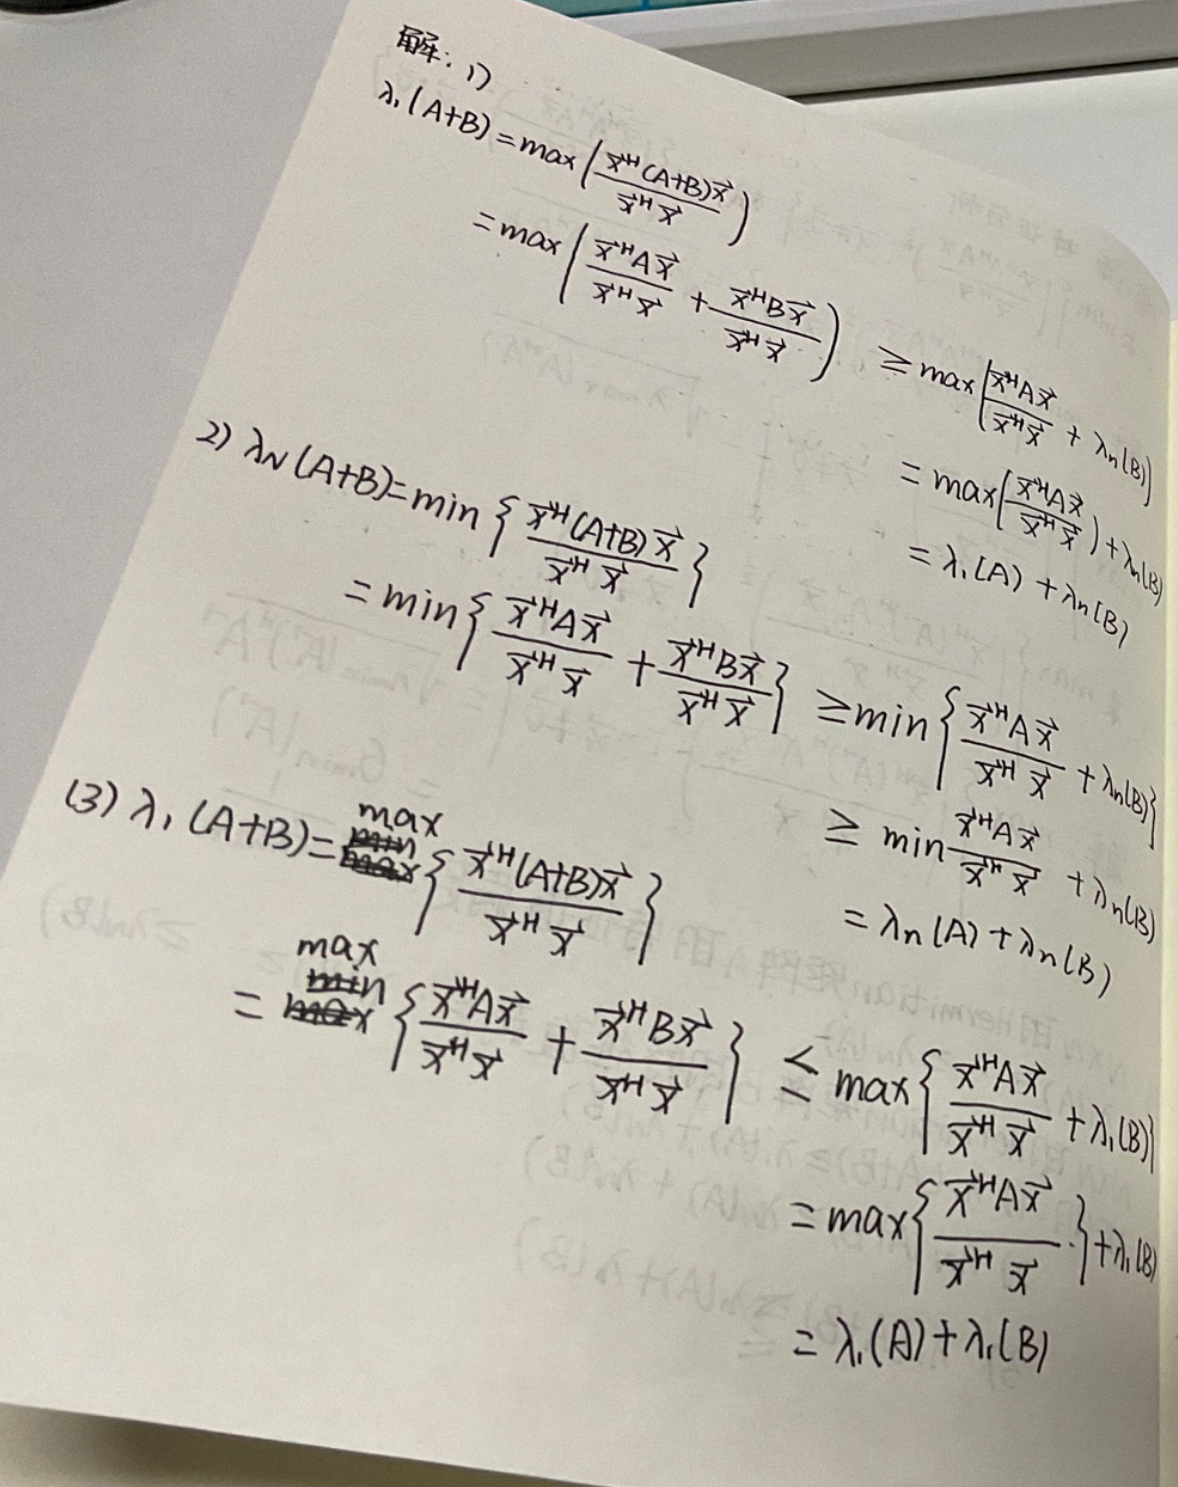 解: 1)
λ₁(A+B) = max( x⃗ᴴ(A+B)x⃗ / x⃗ᴴx⃗ )
= max( x⃗ᴴAx⃗ / x⃗ᴴx⃗ + x⃗ᴴBx⃗ / x⃗ᴴx⃗ ) ≥ max( x⃗ᴴAx⃗ / x⃗ᴴx⃗ + λn(B) )
= max( x⃗ᴴAx⃗ / x⃗ᴴx⃗ ) + λn(B)
= λ₁(A) + λn(B)
2) λN(A+B) = min { x⃗ᴴ(A+B)x⃗ / x⃗ᴴx⃗ }
= min { x⃗ᴴAx⃗ / x⃗ᴴx⃗ + x⃗ᴴBx⃗ / x⃗ᴴx⃗ } ≥ min { x⃗ᴴAx⃗ / x⃗ᴴx⃗ + λn(B) }
≥ min x⃗ᴴAx⃗ / x⃗ᴴx⃗ + λn(B)
= λn(A) + λn(B)
(3) λ₁(A+B) = max { x⃗ᴴ(A+B)x⃗ / x⃗ᴴx⃗ }
= max { x⃗ᴴAx⃗ / x⃗ᴴx⃗ + x⃗ᴴBx⃗ / x⃗ᴴx⃗ } ≤ max { x⃗ᴴAx⃗ / x⃗ᴴx⃗ + λ₁(B) }
= max { x⃗ᴴAx⃗ / x⃗ᴴx⃗ } + λ₁(B)
= λ₁(A) + λ₁(B)